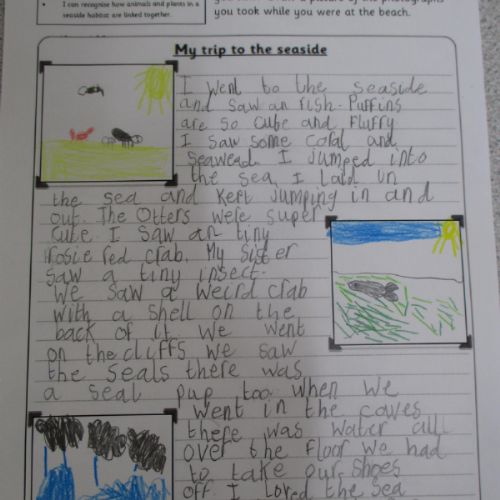 I can recognise how animals and plants in a
seaside habitat are linked together.
you took while you were at the beach.
My trip to the seaside
I went to the seaside
and saw an fish. Puffins
are so cute and fluffy
I saw some coral and
seawead. I Jumped into
the sea I laid in
the sea and kept Jumping in and
out. The Otters were super
cute I saw an tiny
rosie red crab. My Sister
saw a tiny insect.
we saw a weird crab
with a shell on the
back of it we went
on the cliffs we saw
the seals there was
a seal pup too when we
went in the caves
there was water all
over the floor we had
to take our shoes
off. I loved the sea